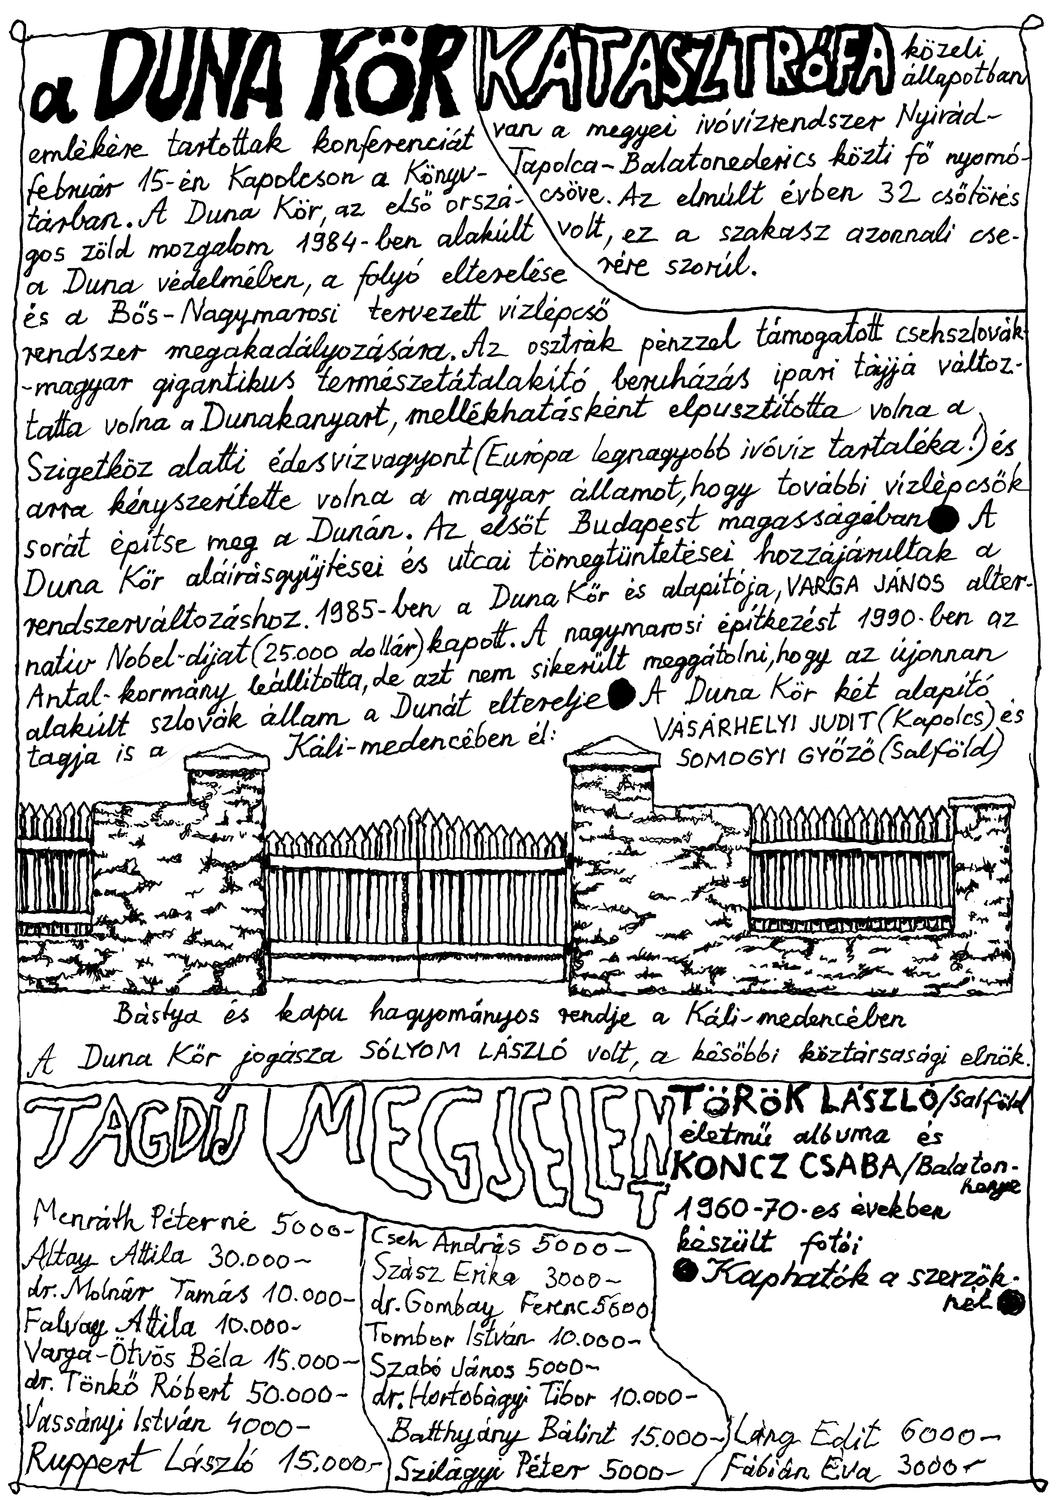 a DUNA KÖR
emlékére tartottak konferenciát
február 15-én Kapolcson a Könyv-
tárban. A Duna Kör, az első orszá-
gos zöld mozgalom 1984-ben alakúlt
a Duna védelmében, a folyó elterelése
és a Bős-Nagymarosi tervezett vízlépcső
rendszer megakadályozására. Az osztrák pénzzel támogatott csehszlovák-
-magyar gigantikus természetátalakító beruházás ipari tájjá változ-
tatta volna a Dunakanyart, mellékhatásként elpusztította volna a
Szigetköz alatti édesvízvagyont (Európa legnagyobb ivóvíz tartaléka!) és
arra kényszerítette volna a magyar államot, hogy további vízlépcsők
sorát építse meg a Dunán. Az elsőt Budapest magasságában ● A
Duna Kör aláírásgyűjtései és utcai tömegtüntetései hozzájárultak a
rendszerváltozáshoz. 1985-ben a Duna Kör és alapítója, VARGA JÁNOS alter-
nativ Nobel-díjat (25.000 dollár) kapott. A nagymarosi építkezést 1990-ben az
Antal-kormány leállította, de azt nem sikerült meggátolni, hogy az újonnan
alakúlt szlovák állam a Dunát elterelje ● A Duna Kör két alapító
tagja is a Káli-medencében él: VÁSÁRHELYI JUDIT (Kapolcs) és
SOMOGYI GYŐZŐ (Salföld)
KATASZTRÓFA közeli
állapotban
van a megyei ivóvízrendszer Nyirád-
Tapolca-Balatonederics közti fő nyomó-
csöve. Az elmúlt évben 32 csőtörés
volt, ez a szakasz azonnali cse-
rére szorúl.
Bástya és kapu hagyományos rendje a Káli-medencében
A Duna Kör jogásza SÓLYOM LÁSZLÓ volt, a későbbi köztársasági elnök.
TAGDÍJ
Menráth Péterné 5000-
Altay Attila 30.000-
dr. Molnár Tamás 10.000-
Falvay Attila 10.000-
Varga-Ötvös Béla 15.000-
dr. Tönkő Róbert 50.000-
Vassányi István 4000-
Ruppert László 15.000-
Cseh András 5000-
Szász Erika 3000-
dr. Gombay Ferenc 5600
Tombor István 10.000-
Szabó János 5000-
dr. Hortobágyi Tibor 10.000-
Batthyány Bálint 15.000-
Szilágyi Péter 5000-
Láng Edit 6000-
Fábián Éva 3000-
MEGJELENT
TÖRÖK LÁSZLÓ/Salföld
életmű albuma és
KONCZ CSABA/Balaton-
henye
1960-70-es években
készült fotói
● Kaphatók a szerzők-
nél ●